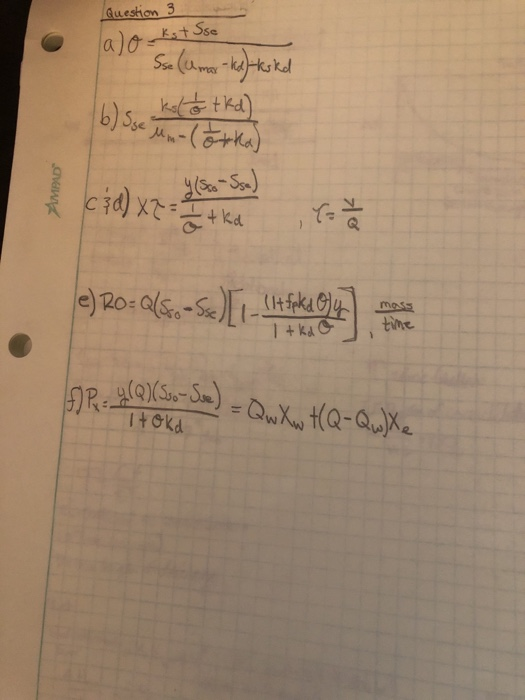 Question 3
a) θ = (Ks + Sse) / (Sse(μmax - kd) - kskd)
b) Sse = Ks(1/θ + Kd) / (μm - (1/θ + Kd))
c & d) Xτ = y(Sso - Sse) / (1/θ + Kd) , τ = V/Q
e) RO = Q(Sso - Sse)[1 - (1 + fpkdθ)y / (1 + kdθ)] , mass/time
f) Px = y(Q)(Sso - Sse) / (1 + θkd) = QwXw + (Q - Qw)Xe
AMPAD